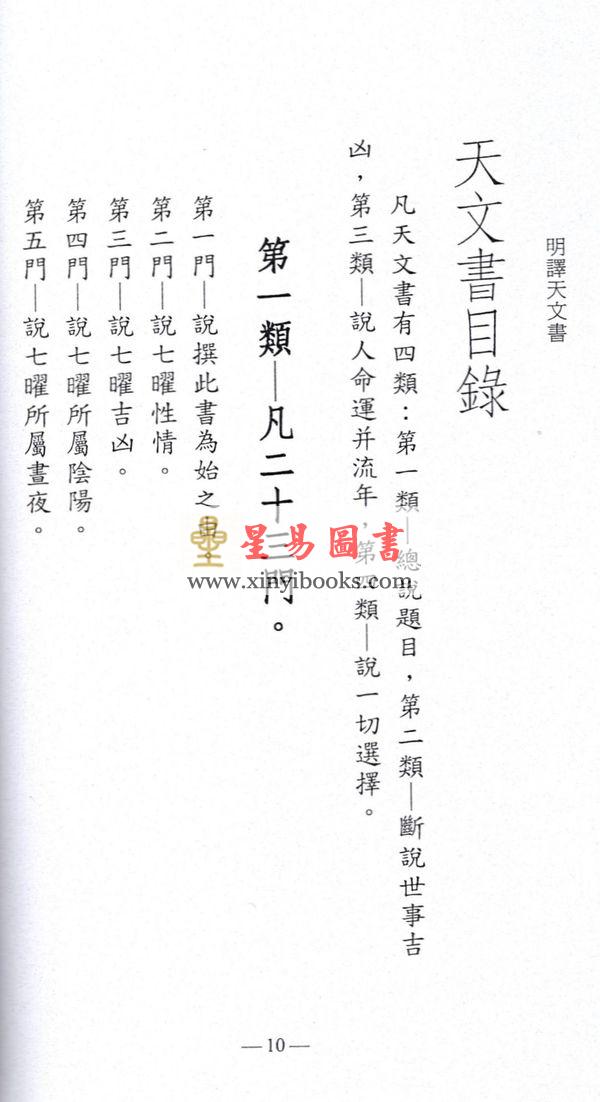 明譯天文書
天文書目錄
凡天文書有四類：第一類—總說題目，第二類—斷說世事吉
凶，第三類—說人命運并流年，第四類—說一切選擇。
第一類—凡二十三門。
第一門—說撰此書為始之由。
第二門—說七曜性情。
第三門—說七曜吉凶。
第四門—說七曜所屬陰陽。
第五門—說七曜所屬晝夜。
星易圖書
www.xinyibooks.com
—10—